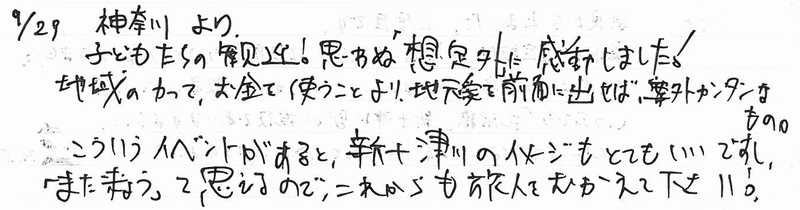 9/29 神奈川より
子どもたちの歓迎!思わぬ「想定外」に感動しました!
地域の力って、お金を使うことより、地元愛を前面に出せば、案外カンタンな
もの。
こういうイベントがあると、新十津川のイメージもとてもいいですし、
「また来よう」って思えるので、これからも旅人をむかえて下さい。